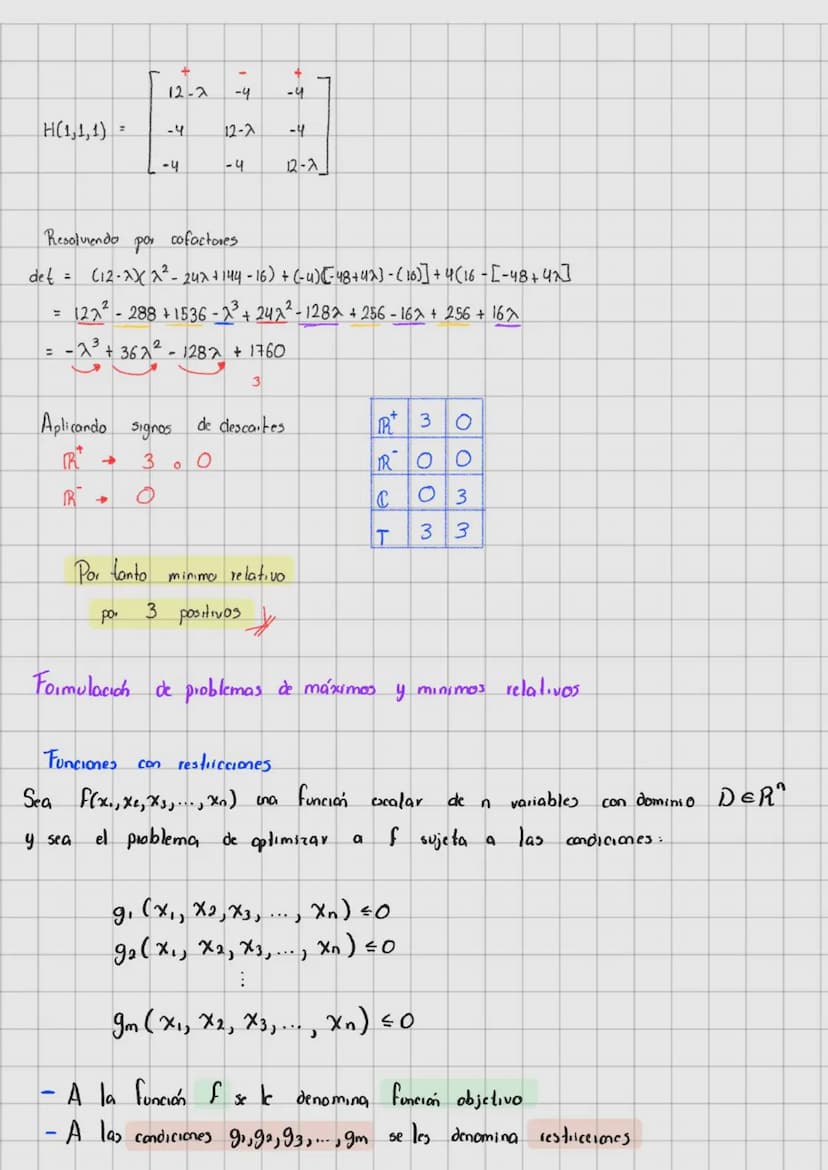 + - +
12-λ -4 -4
H(1,1,1) = -4 12-λ -4
-4 -4 12-λ
Resolviendo por cofactores
det = (12-λ)(λ² - 24λ + 144 - 16) + (-4)[-48+4λ] - (16)] + 4(16 - [-48 + 4λ]
= 12λ² - 288 + 1536 - λ³ + 24λ² - 128λ + 256 - 16λ + 256 + 16λ
= -λ³ + 36λ² - 128λ + 1760
3
Aplicando signos de descartes
ℝ⁺ → 3 o 0
ℝ⁻ → 0
ℝ⁺ 3 0
ℝ⁻ 0 0
ℂ 0 3
T 3 3
Por tanto minimo relativo
por 3 positivos
Formulación de problemas de máximos y minimos relativos
Funciones con restricciones
Sea f(x₁,x₂,x₃,...,xn) una función escalar de n variables con dominio D∈Rⁿ
y sea el problema de optimizar a f sujeta a las condiciones:
g₁(x₁, x₂, x₃, ..., xn) ≤0
g₂(x₁, x₂, x₃, ..., xn) ≤0
⋮
gm(x₁, x₂, x₃, ..., xn) ≤0
- A la función f se le denomina función objetivo
- A las condiciones g₁,g₂,g₃,...,gm se les denomina restricciones